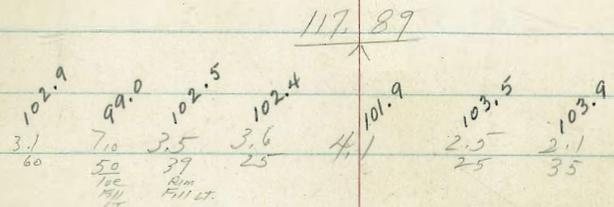 117.89
102.9 99.0 102.5 102.4 101.9 103.5 103.9
3.1 7.0 3.5 3.6 4.1 2.5 2.1
60 50 39 25 25 35
Toe Rim
Fill Fill LT.
LT